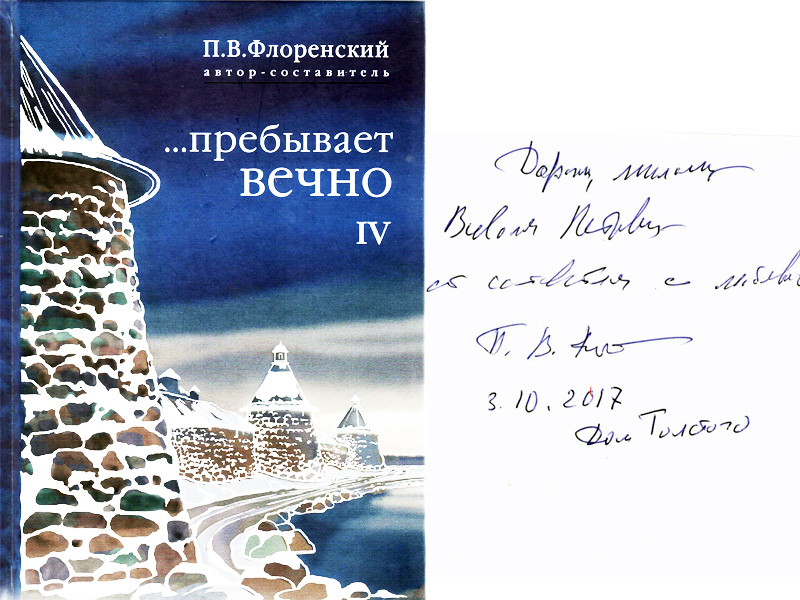 П.В.Флоренский
автор-составитель
...пребывает
вечно
IV
Дорогому, милому
от составителя с любовью
П. В.
3.10.2017
Дом Толстого